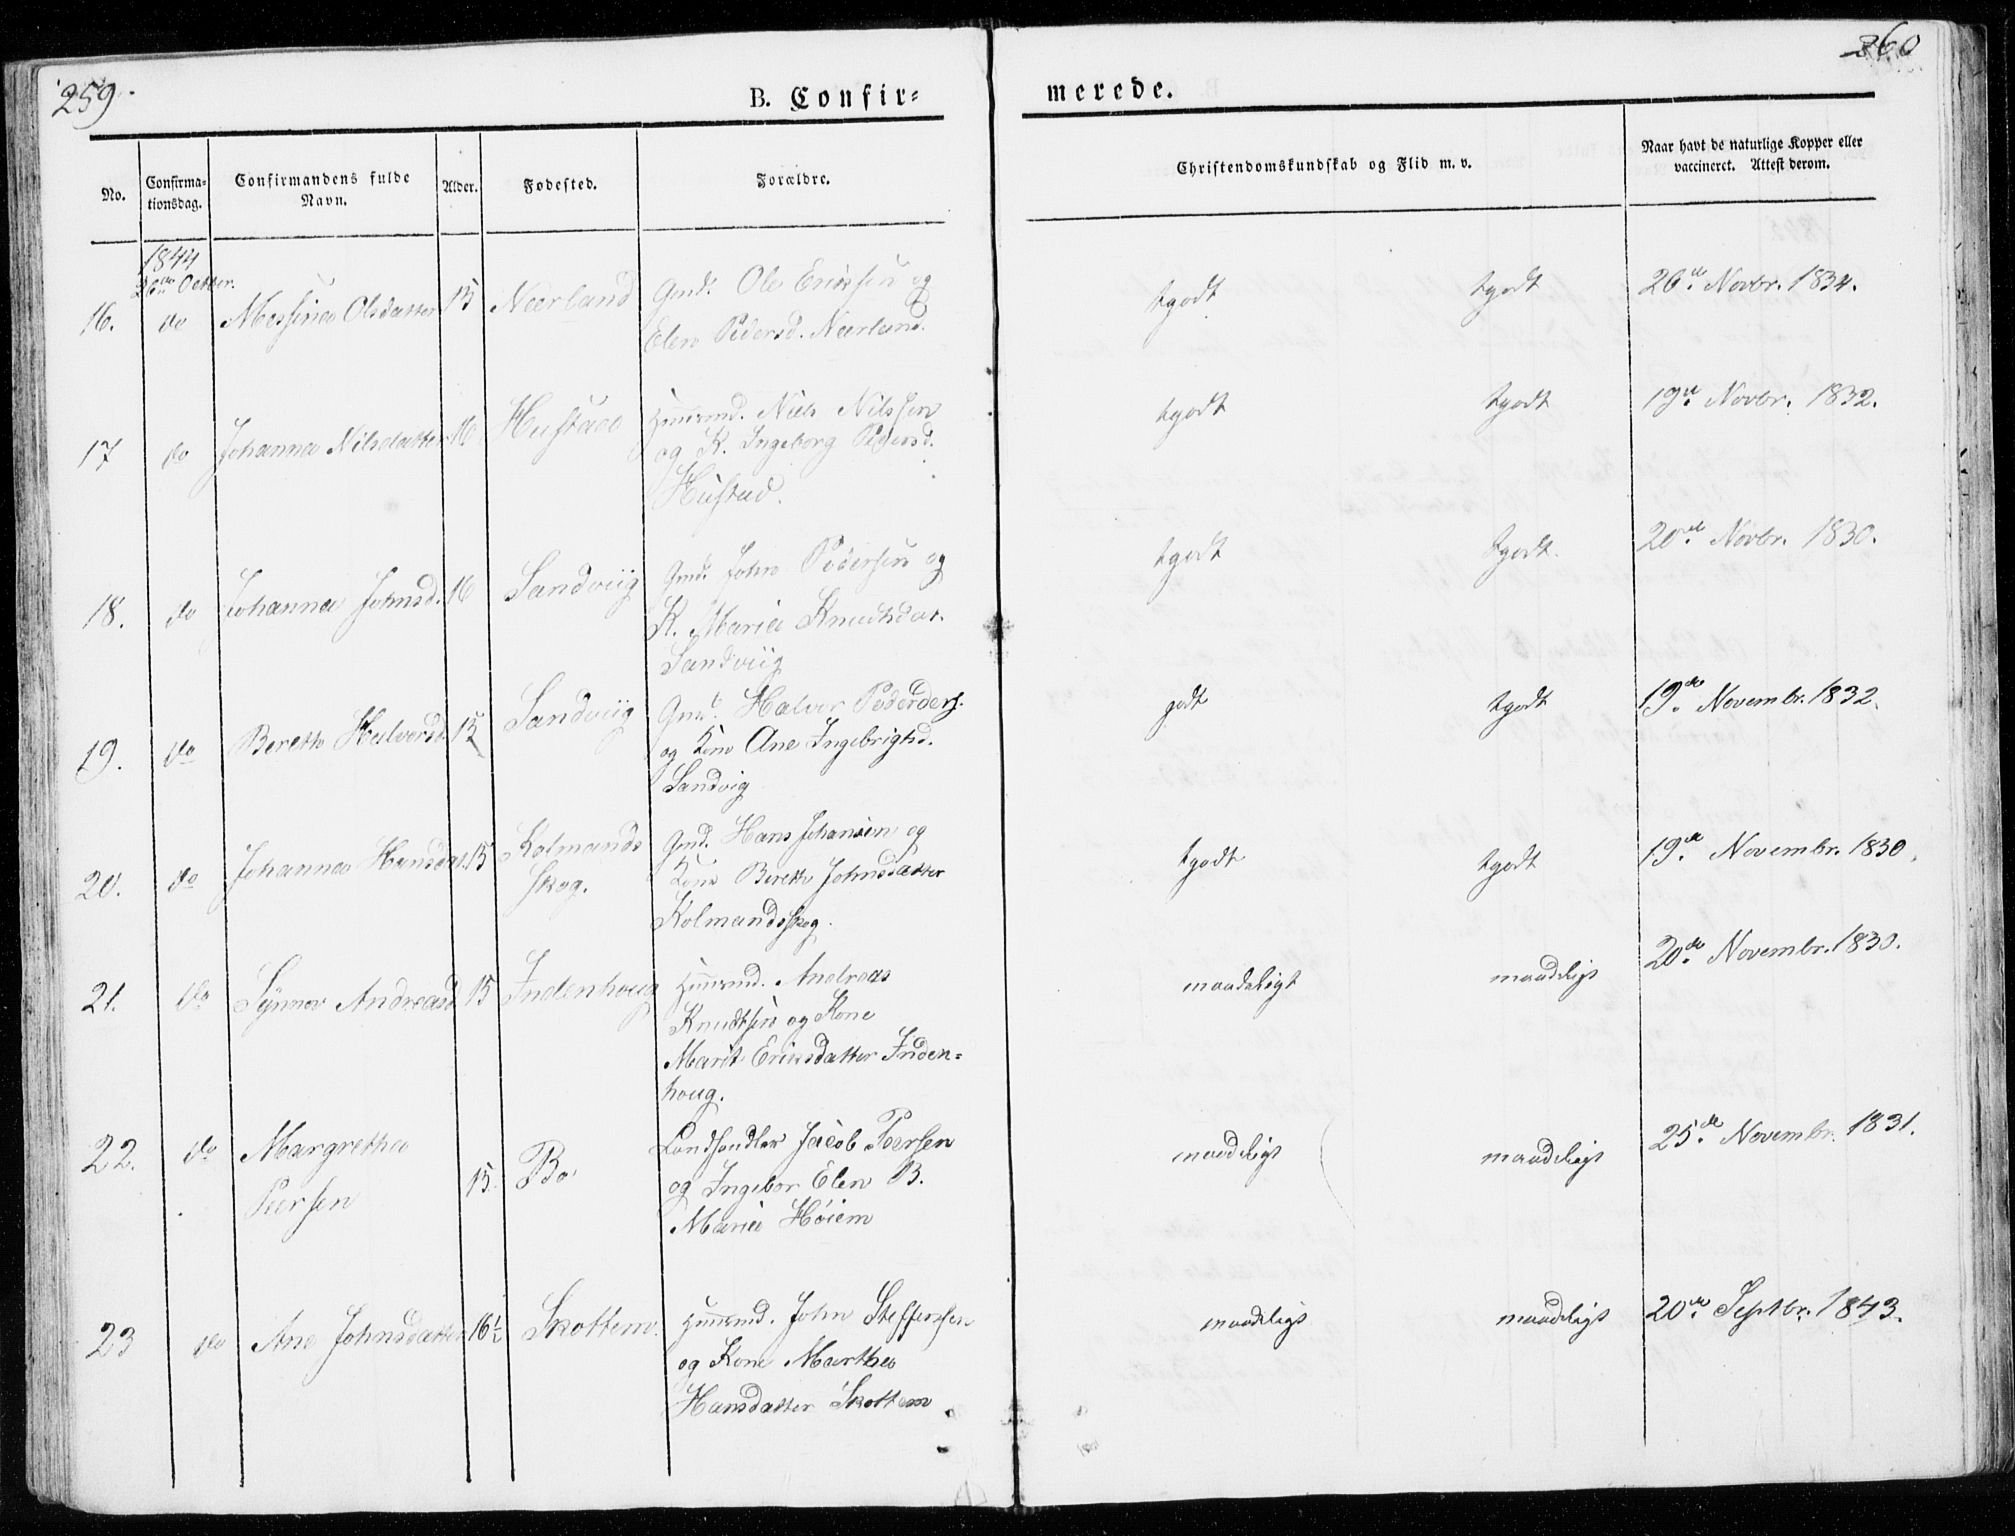 259.
260
B. Confir=
merede.
No.
Confirma-
tionsdag.
Confirmandens fulde
Navn.
Alder.
Fødested.
Forældre.
Christendomskundskab og Flid m. v.
Naar havt de naturlige Kopper eller
vaccineret. Attest derom.
1844
26de Octbr.
16. do Messina Olsdatter 15 Nærland Gmd. Ole Ericksen og
Elen Pedersd. Nærland.
tgodt tgodt 26de Novbr. 1834.
17 do Johanna Nilsdatter 16 Hustad Huusmd. Niels Nilssen
og K. Ingeborg Pedersd.
Hustad.
tgodt tgodt 19de Novbr. 1832.
18. do Johanna Johnsd. 16 Sandviig Gmd. John Pedersen og
K. Maria Knudtsdat.
Sandviig
tgodt tgodt. 20de Novbr. 1830.
19. do Beretha Halversd. 15 Sandviig Gmd. Halvor Pederders.
og Kone Ane Ingebrigtsd.
Sandvig
godt tgodt 19de Novembr. 1832.
20. do Johanna Hansdat. 15 Kolmands
skog.
Gmd. Hans Johansen og
Kone Beretha Johnsdatter
Kolmandsskog.
tgodt tgodt 19de Novembr. 1830.
21. do Synnov Andreasd 15 Indenhoug Huusmd. Andreas
Knudtsen og Kone
Marit Ericksdatter Inden=
houg.
maadeligt maadeligt 20de Novembr. 1830.
22. do Margretha
Peersen
15. Bo Landhandler Jacob Peersen
og Ingebor Elen B.
Maria Höiem
maadeligt maadeligt 25de Novembr. 1831.
23 do Ane Johnsdatter 16½ Skottem. Huusmd. John Steffensen
og Kone Martha
Hansdatter Skottem.
maadeligt maadeligt 20de Septbr. 1843.